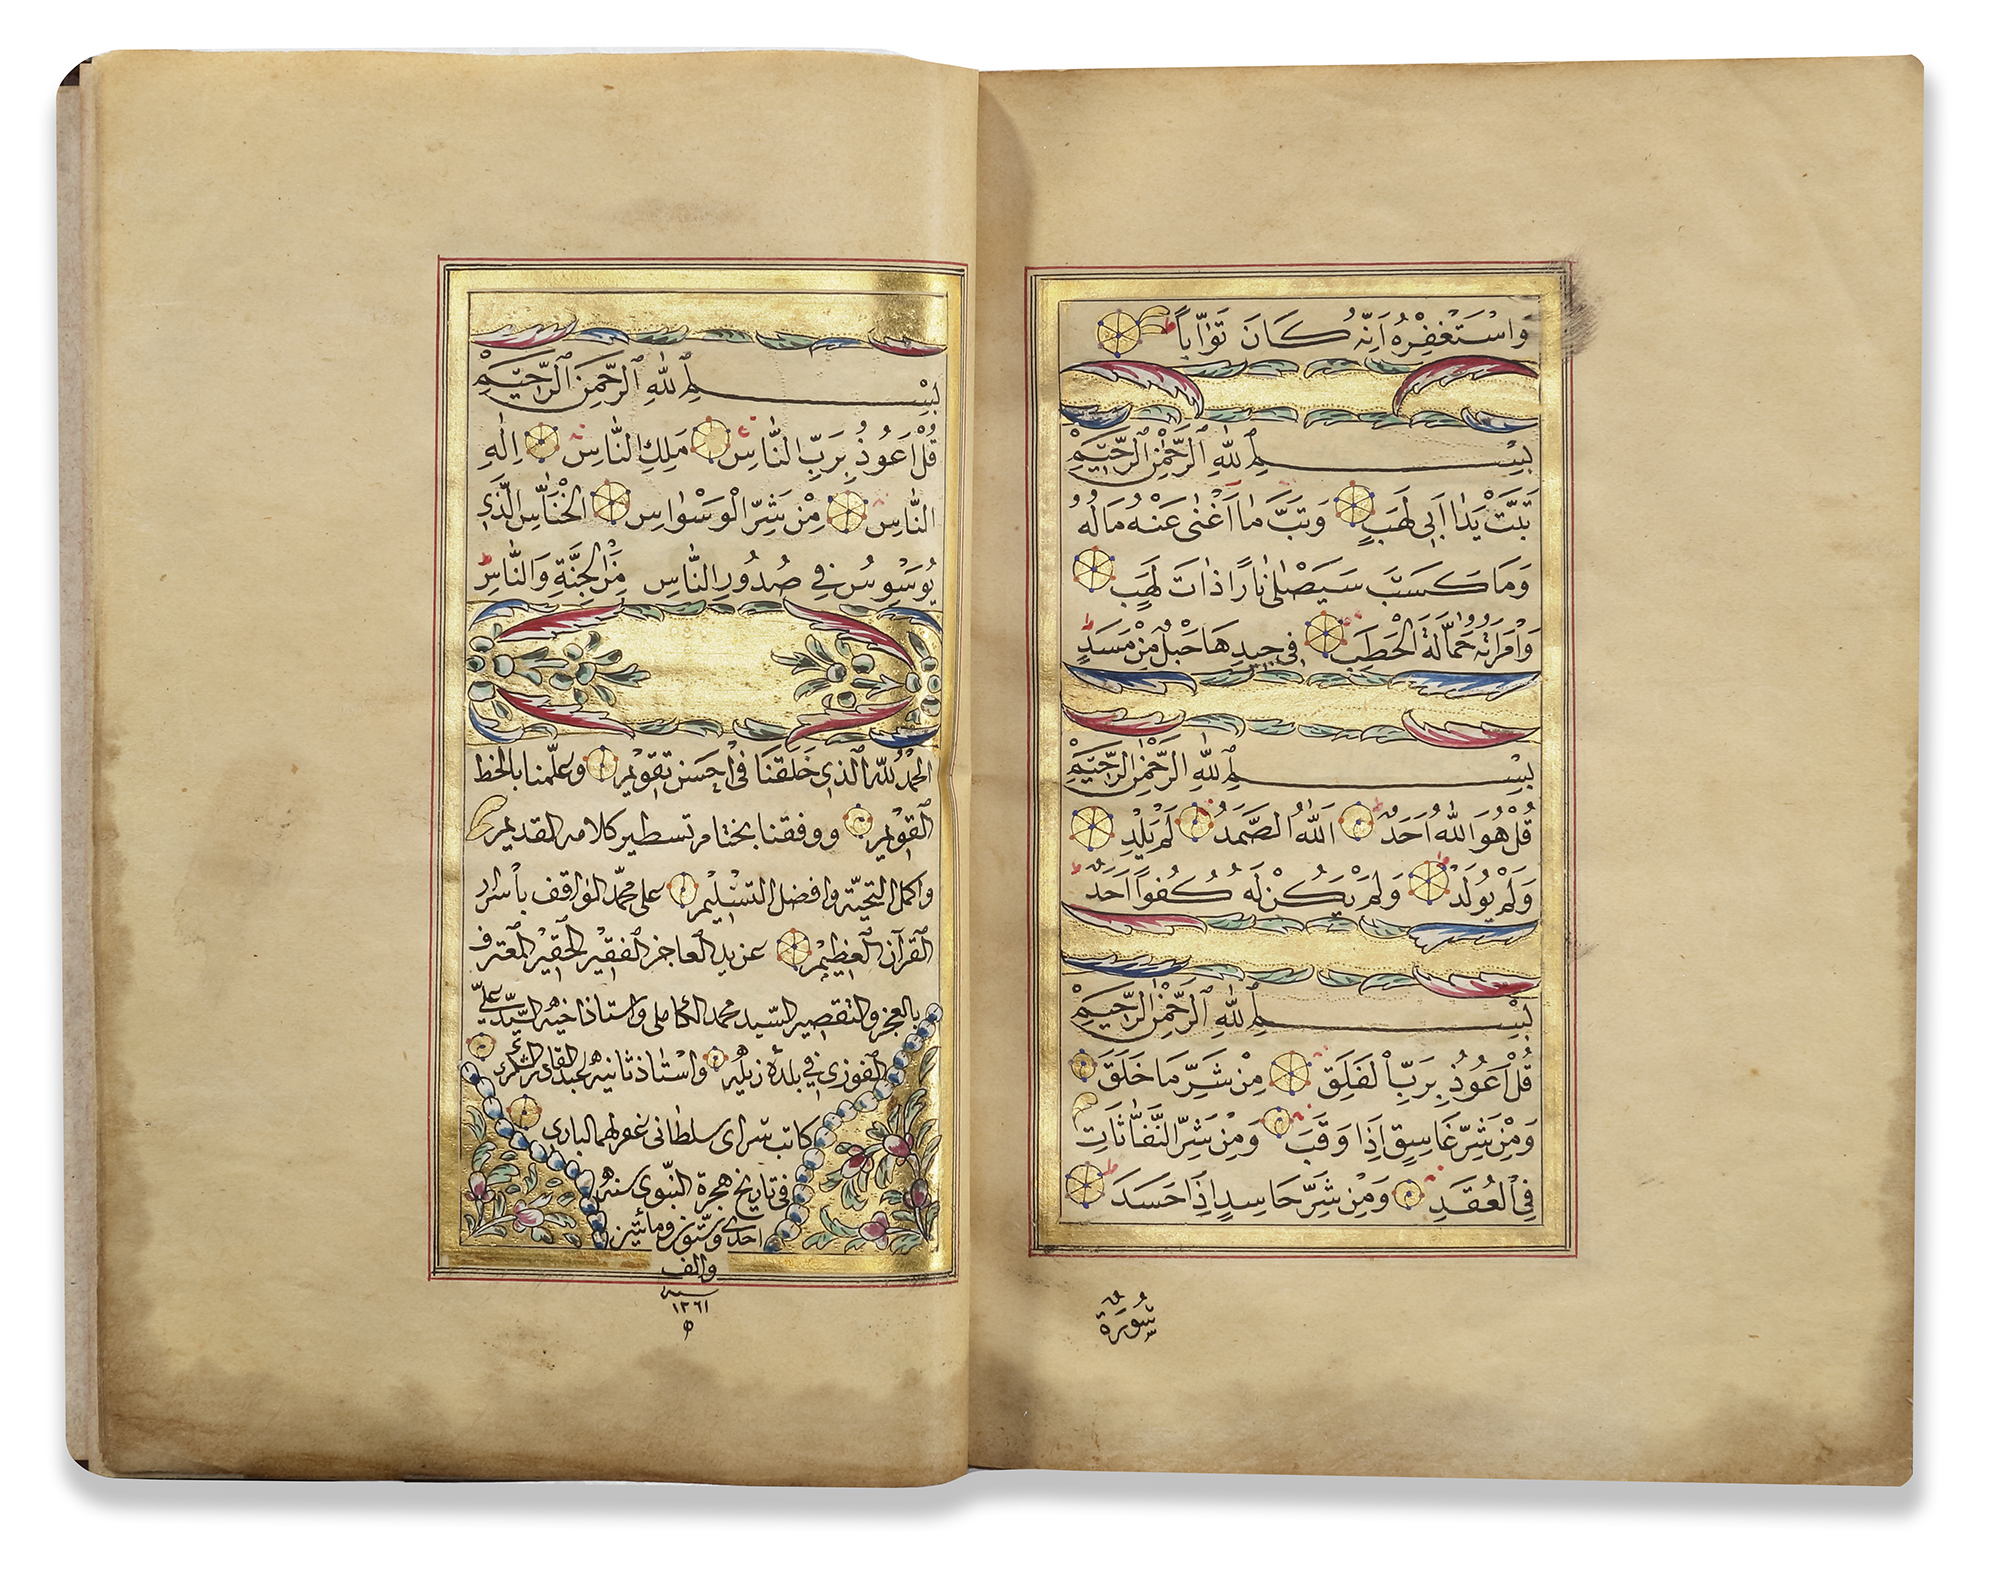 وَاسْتَغْفِرْهُ اِنَّهُ كَانَ تَوَّاباً
بِسْمِ اللّٰهِ الرَّحْمٰنِ الرَّحِيمِ
تَبَّتْ يَدَا اَبِي لَهَبٍ وَتَبَّ مَا اَغْنٰى عَنْهُ مَالُهُ
وَمَا كَسَبَ سَيَصْلٰى نَارًا ذَاتَ لَهَبٍ
وَامْرَاَتُهُ حَمَّالَةَ الْحَطَبِ فِي جِيدِهَا حَبْلٌ مِنْ مَسَدٍ
بِسْمِ اللّٰهِ الرَّحْمٰنِ الرَّحِيمِ
قُلْ هُوَ اللّٰهُ اَحَدٌ اَللّٰهُ الصَّمَدُ لَمْ يَلِدْ
وَلَمْ يُولَدْ وَلَمْ يَكُنْ لَهُ كُفُواً اَحَدٌ
بِسْمِ اللّٰهِ الرَّحْمٰنِ الرَّحِيمِ
قُلْ اَعُوذُ بِرَبِّ الْفَلَقِ مِنْ شَرِّ مَا خَلَقَ
وَمِنْ شَرِّ غَاسِقٍ اِذَا وَقَبَ وَمِنْ شَرِّ النَّفَّاثَاتِ
فِي الْعُقَدِ وَمِنْ شَرِّ حَاسِدٍ اِذَا حَسَدَ
سُورَةٌ
بِسْمِ اللّٰهِ الرَّحْمٰنِ الرَّحِيمِ
قُلْ اَعُوذُ بِرَبِّ النَّاسِ مَلِكِ النَّاسِ اِلٰهِ
النَّاسِ مِنْ شَرِّ الْوَسْوَاسِ الْخَنَّاسِ الَّذِي
يُوَسْوِسُ فِي صُدُورِ النَّاسِ مِنَ الْجِنَّةِ وَالنَّاسِ
الحمد للّٰه الذى خَلَقَنَا فى اَحسن تقويم وعلّمنا بالخط
القويم ووفقنا بختام تسطير كلامه القديم
واكمل التحيّة وافضل التسليم على محمّد الواقف باسرار
القرآن العظيم عن يد العاجز الفقير الحقير المعترف
بالعجز والتقصير السّيد محمد الكاملى واستاذ اخيه السّيد على
الفوزى فى بلدهٔ زيله واستاذ ثانيه عبد القادر الشكرى
كاتب سراى سلطانى غفر لهما البارى
فى تاريخ هجرة النبوى سنه
احدى وستون ومائتين
والف
سنه
١٢٦١